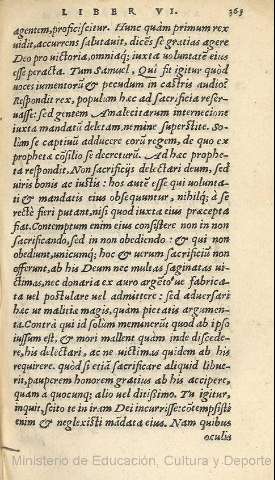 LIBER VI. 363
agentem, proficiscitur. Hunc quàm primum rex
uidit, accurrens salutauit, dicẽs se gratias agere
Deo pro uictoria, omniaq; iuxta uoluntatẽ eius
esse peracta. Tum Samuel, Qui fit igitur quòd
uoces iumentorũ & pecudum in castris audio?
Respondit rex, populum hæc ad sacrificia reser
uasse: sed gentem Amalecitarum internecione
iuxta mandatũ deletam, nemine superstite. So-
lùm se captiuũ adducere eorũ regem, de quo ex
propheta cõsilio se decreturũ. Ad hæc prophe-
ta respondit. Non sacrificijs delectari deum, sed
uiris bonis ac iustis: hos autẽ esse qui uolunta-
ti & mandatis eius obsequuntur, nihilq; à se
rectè fieri putant, nisi quod iuxta eius præcepta
fiat. Contemptum enim eius consistere non in non
sacrificando, sed in non obediendo: & qui non
obediunt, unicumq; hoc & uerum sacrificiũ non
offerunt, ab his Deum nec multas saginatas ui-
ctimas, nec donaria ex auro argẽto'ue fabrica-
ta uel postulare uel admittere: sed aduersari
hæc ut malitiæ magis, quàm pietatis argumen-
ta. Contrà qui id solùm meminerũt quod ab ipso
iussum est, & mori mallent quàm inde discede-
re, his delectari, ac ne uictimas quidem ab his
requirere. quòd si etiã sacrificare aliquid libue-
rit, pauperem honorem gratius ab his accipere,
quàm a quocunq; alio uel ditißimo. Tu igitur,
inquit, scito te in iram Dei incurrisse: cõtempsisti
enim & neglexisti mãdata eius. Nam quibus
oculis
Ministerio de Educación, Cultura y Deporte